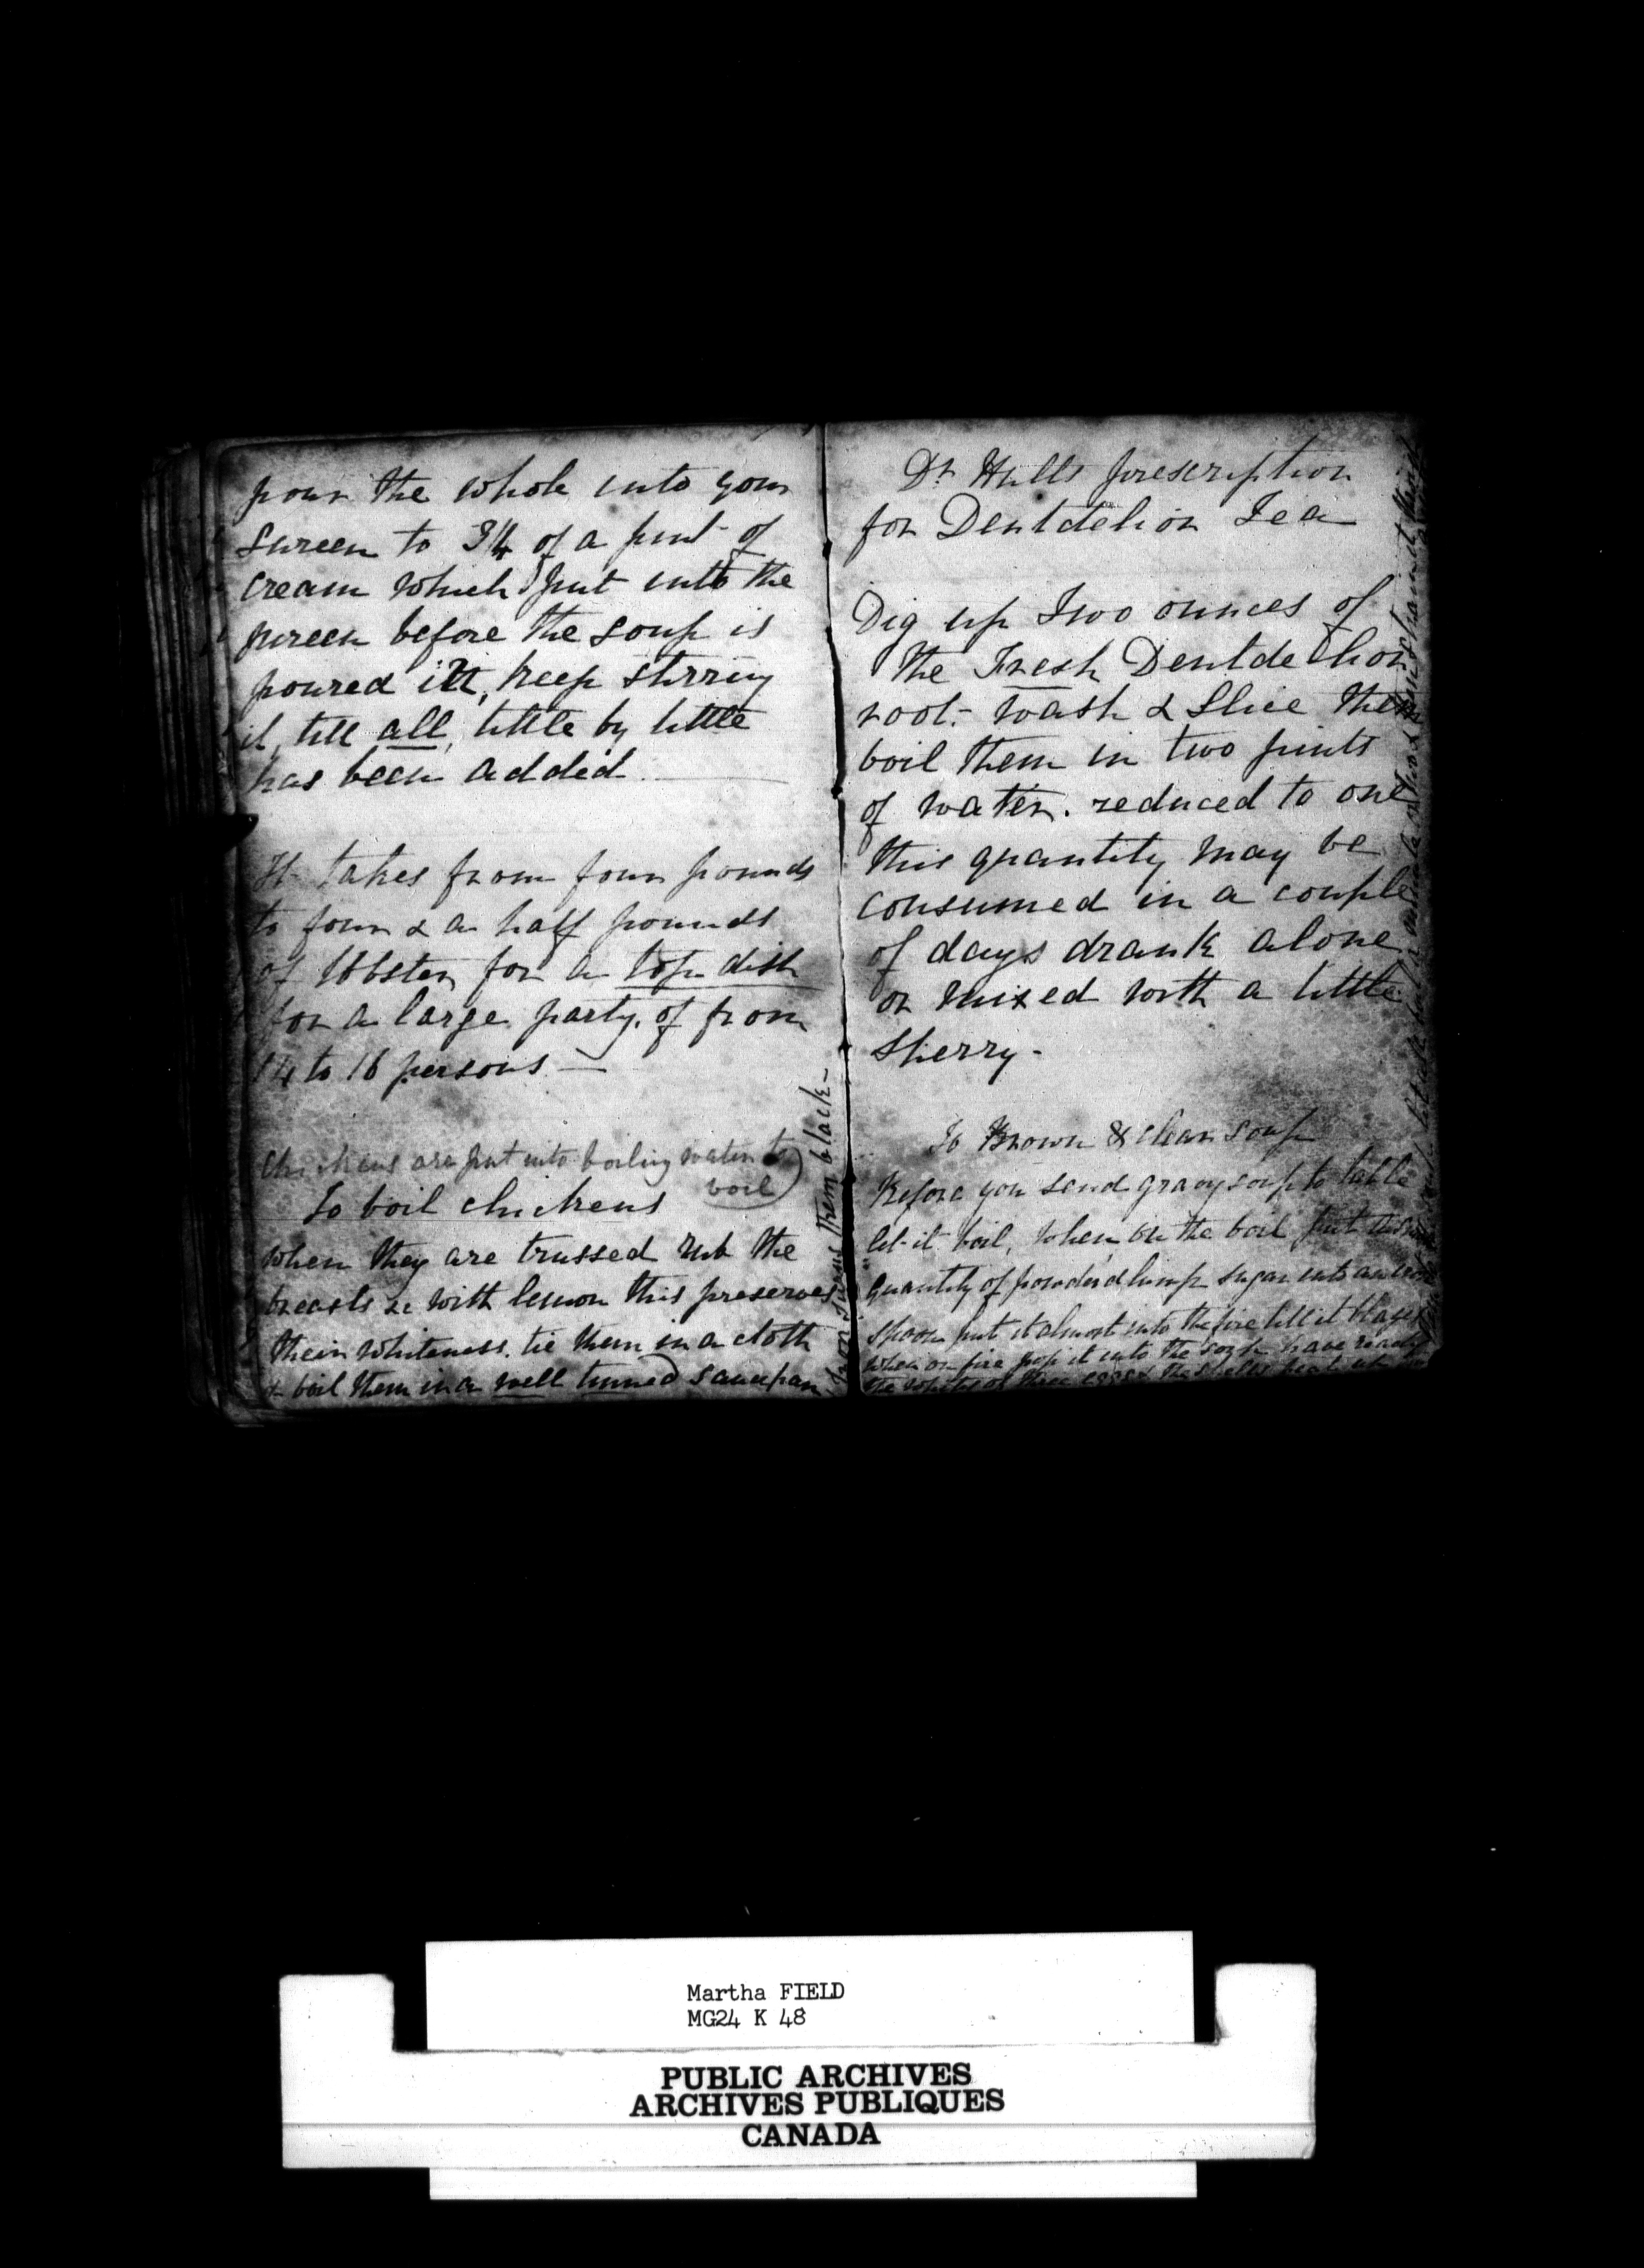 pour the whole into your
tureen to 3/4 of a pint of
cream which put into the
tureen before the soup is
poured in it, keep stirring
it, till all, little by little
has been added.
It takes from four pounds
to four & a half pounds
of lobster for a top dish
for a large party, of from
14 to 16 persons —
Chickens are put into boiling water to
boil)
To boil chickens
when they are trussed rub the
breasts &c with lemon this preserves
their whiteness. tie them in a cloth
& boil them in a well tinned saucepan
iron turns them black –
Dr Hills prescription
for Dentdelion Tea
Dig up Two ounces of
the Fresh Dentdelion
root. wash & Slice them
boil them in two pints
of water. reduced to one
this quantity may be
consumed in a couple
of days drank alone
or mixed with a little
Sherry -
To Brown & clear soup
Before you send gravy soup to table
let it boil, when on the boil put
quantity of powder'd lump sugar into an iron
spoon put it almost into the fire till it blazes
when on fire pop it into the soup have ready
the whites of three eggs & the shells beat
Martha FIELD
MG24 K 48
PUBLIC ARCHIVES
ARCHIVES PUBLIQUES
CANADA